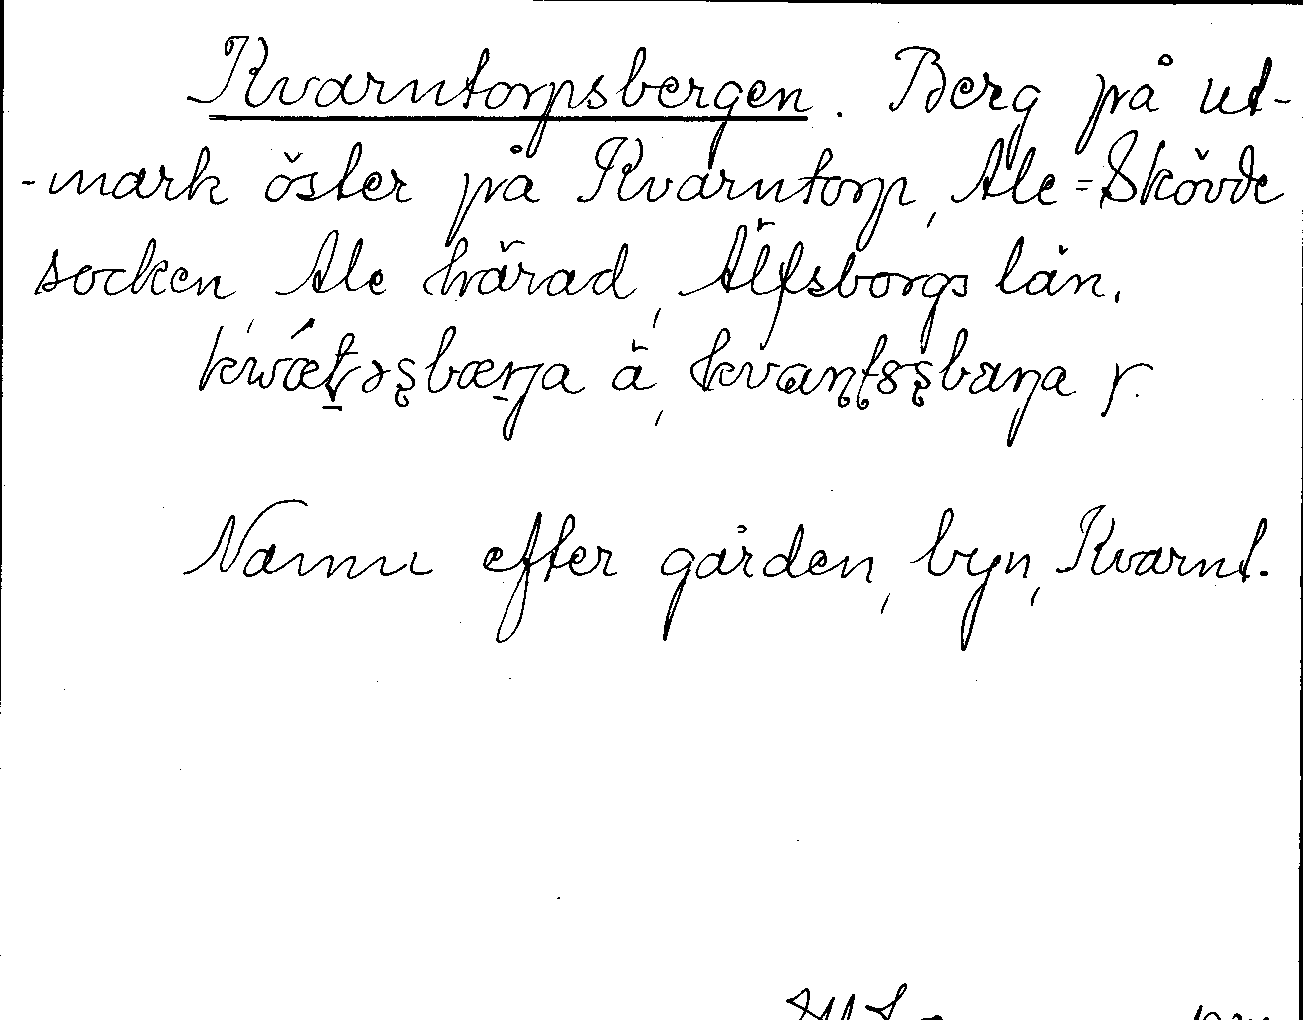 Kvarntorpsbergen. Berg på ut-
-mark öster på Kvarntorp, Ale=Skövde
socken, Ale härad, Älfsborgs län.
Namn efter gården, byn, Kvarnt.